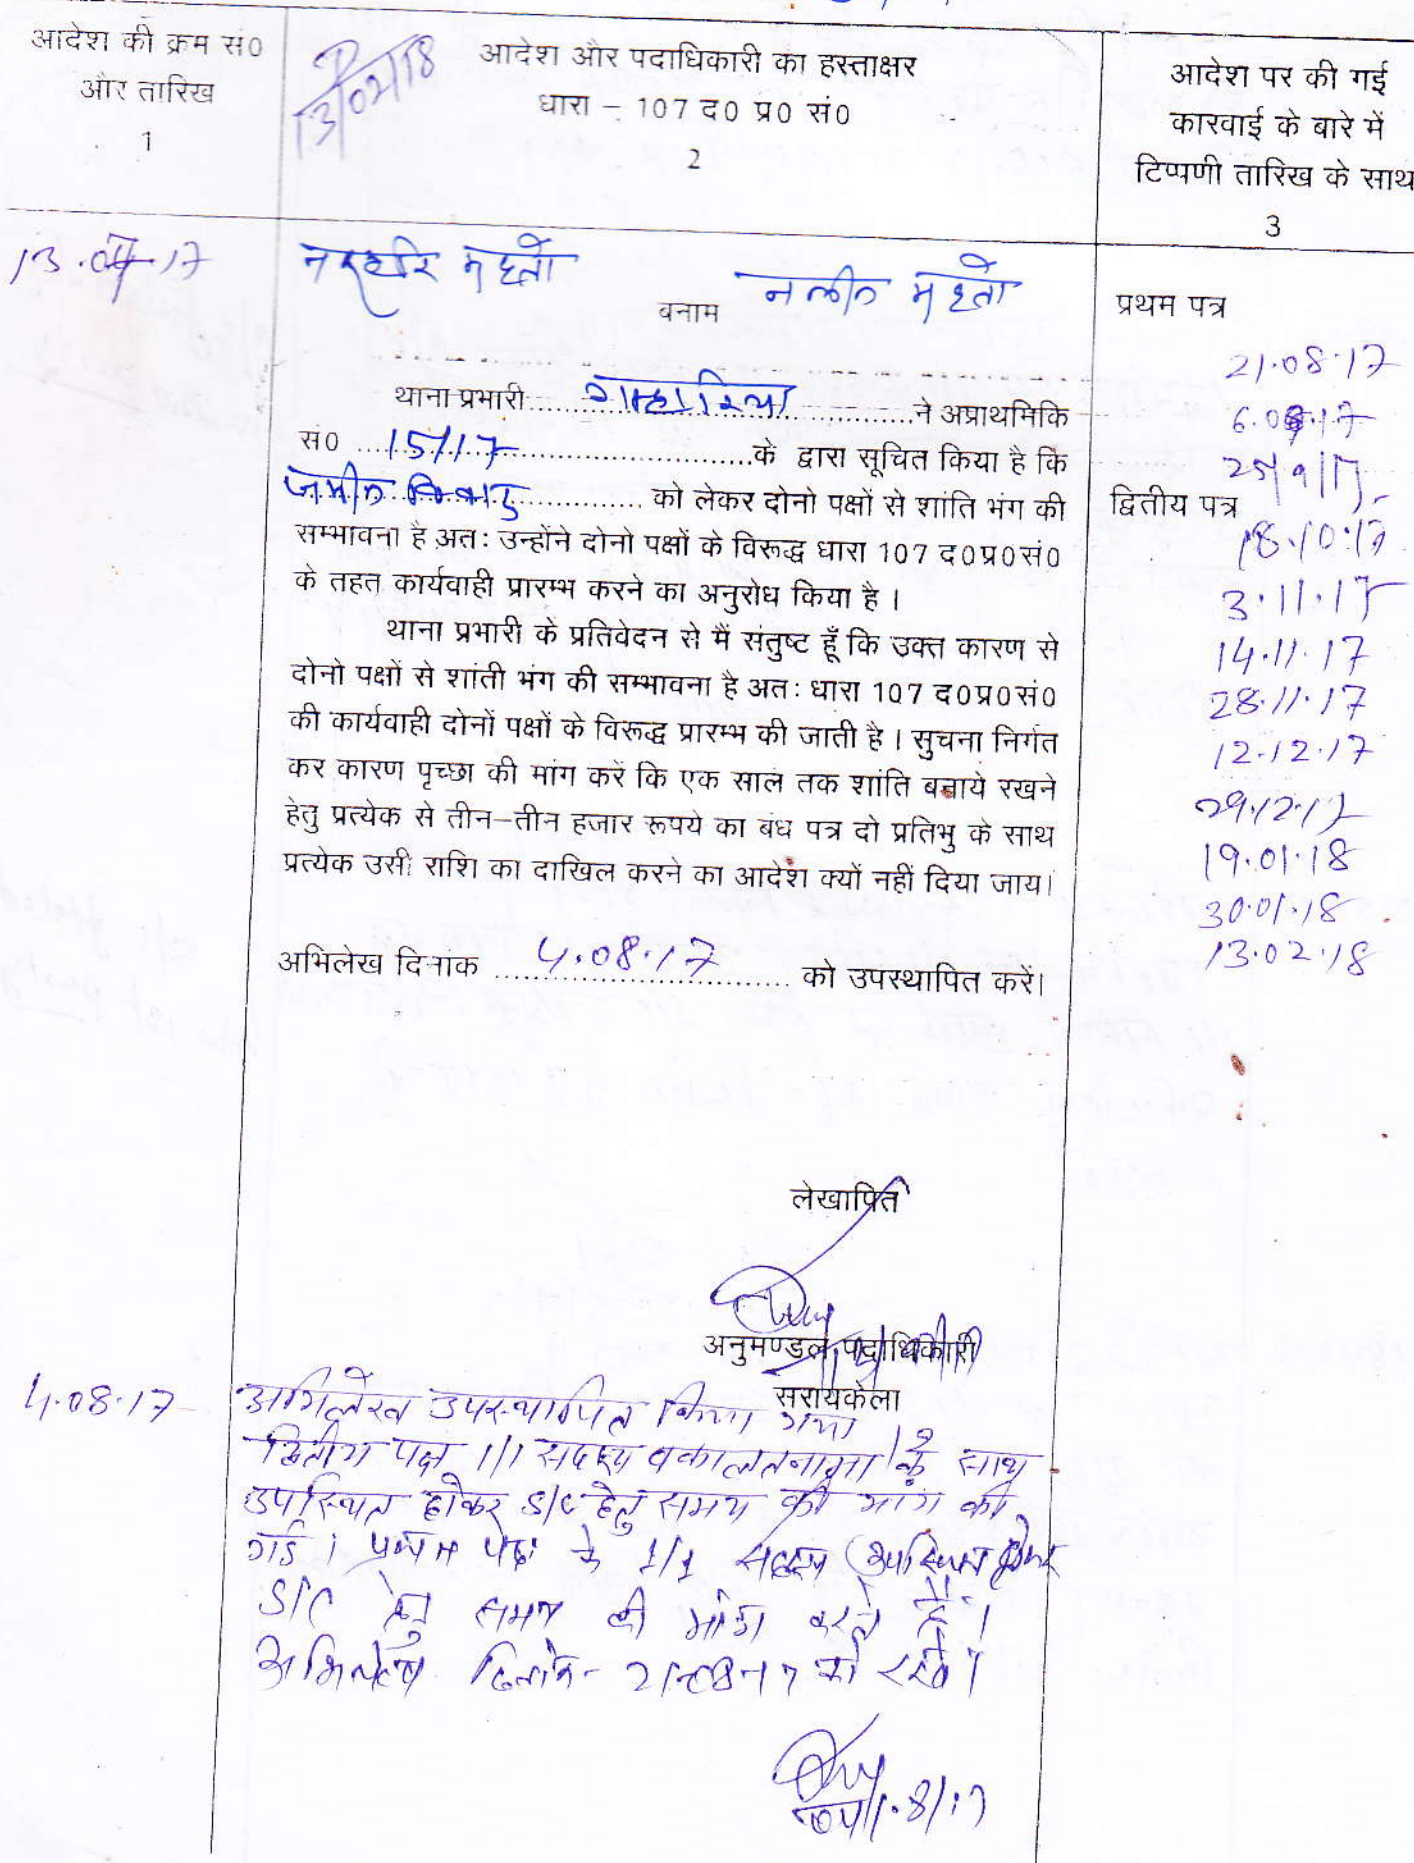 आदेश की क्रम सं0
और तारिख
1
13/02/18
आदेश और पदाधिकारी का हस्ताक्षर
धारा – 107 द0 प्र0 सं0
2
आदेश पर की गई
कारवाई के बारे में
टिप्पणी तारिख के साथ
3
13.07.17
नरहरि महतो
बनाम
नलीन महतो
थाना प्रभारी गाम्हारिया ने अप्राथमिकि
सं0 15/17 के द्वारा सूचित किया है कि
जमीन विवाद को लेकर दोनो पक्षों से शांति भंग की
सम्भावना है अतः उन्होंने दोनो पक्षों के विरूद्ध धारा 107 द0प्र0सं0
के तहत कार्यवाही प्रारम्भ करने का अनुरोध किया है ।
थाना प्रभारी के प्रतिवेदन से मैं संतुष्ट हूँ कि उक्त कारण से
दोनो पक्षों से शांती भंग की सम्भावना है अतः धारा 107 द0प्र0सं0
की कार्यवाही दोनों पक्षों के विरूद्ध प्रारम्भ की जाती है । सुचना निर्गत
कर कारण पृच्छा की मांग करें कि एक साल तक शांति बनाये रखने
हेतु प्रत्येक से तीन–तीन हजार रूपये का बंध पत्र दो प्रतिभु के साथ
प्रत्येक उसी राशि का दाखिल करने का आदेश क्यों नहीं दिया जाय।
अभिलेख दिनांक 4.08.17 को उपस्थापित करें।
प्रथम पत्र
21.08.17
6.09.17
25/9/17
द्वितीय पत्र
18.10.17
3.11.17
14.11.17
28.11.17
12.12.17
29.12.17
19.01.18
30.01.18
13.02.18
लेखापित
अनुमण्डल पदाधिकारी
सरायकेला
4.08.17
अभिलेख उपस्थापित किया गया
द्वितीय पक्ष 1/1 सदस्य वकालतनामा के साथ
उपस्थित होकर S/C हेतु समय की मांग की
गई । प्रथम पक्ष के 1/1 सदस्य उपस्थित होकर
S/C हेतु समय की मांग करते हैं ।
अभिलेख दिनांक- 21-08-17 को रखें ।